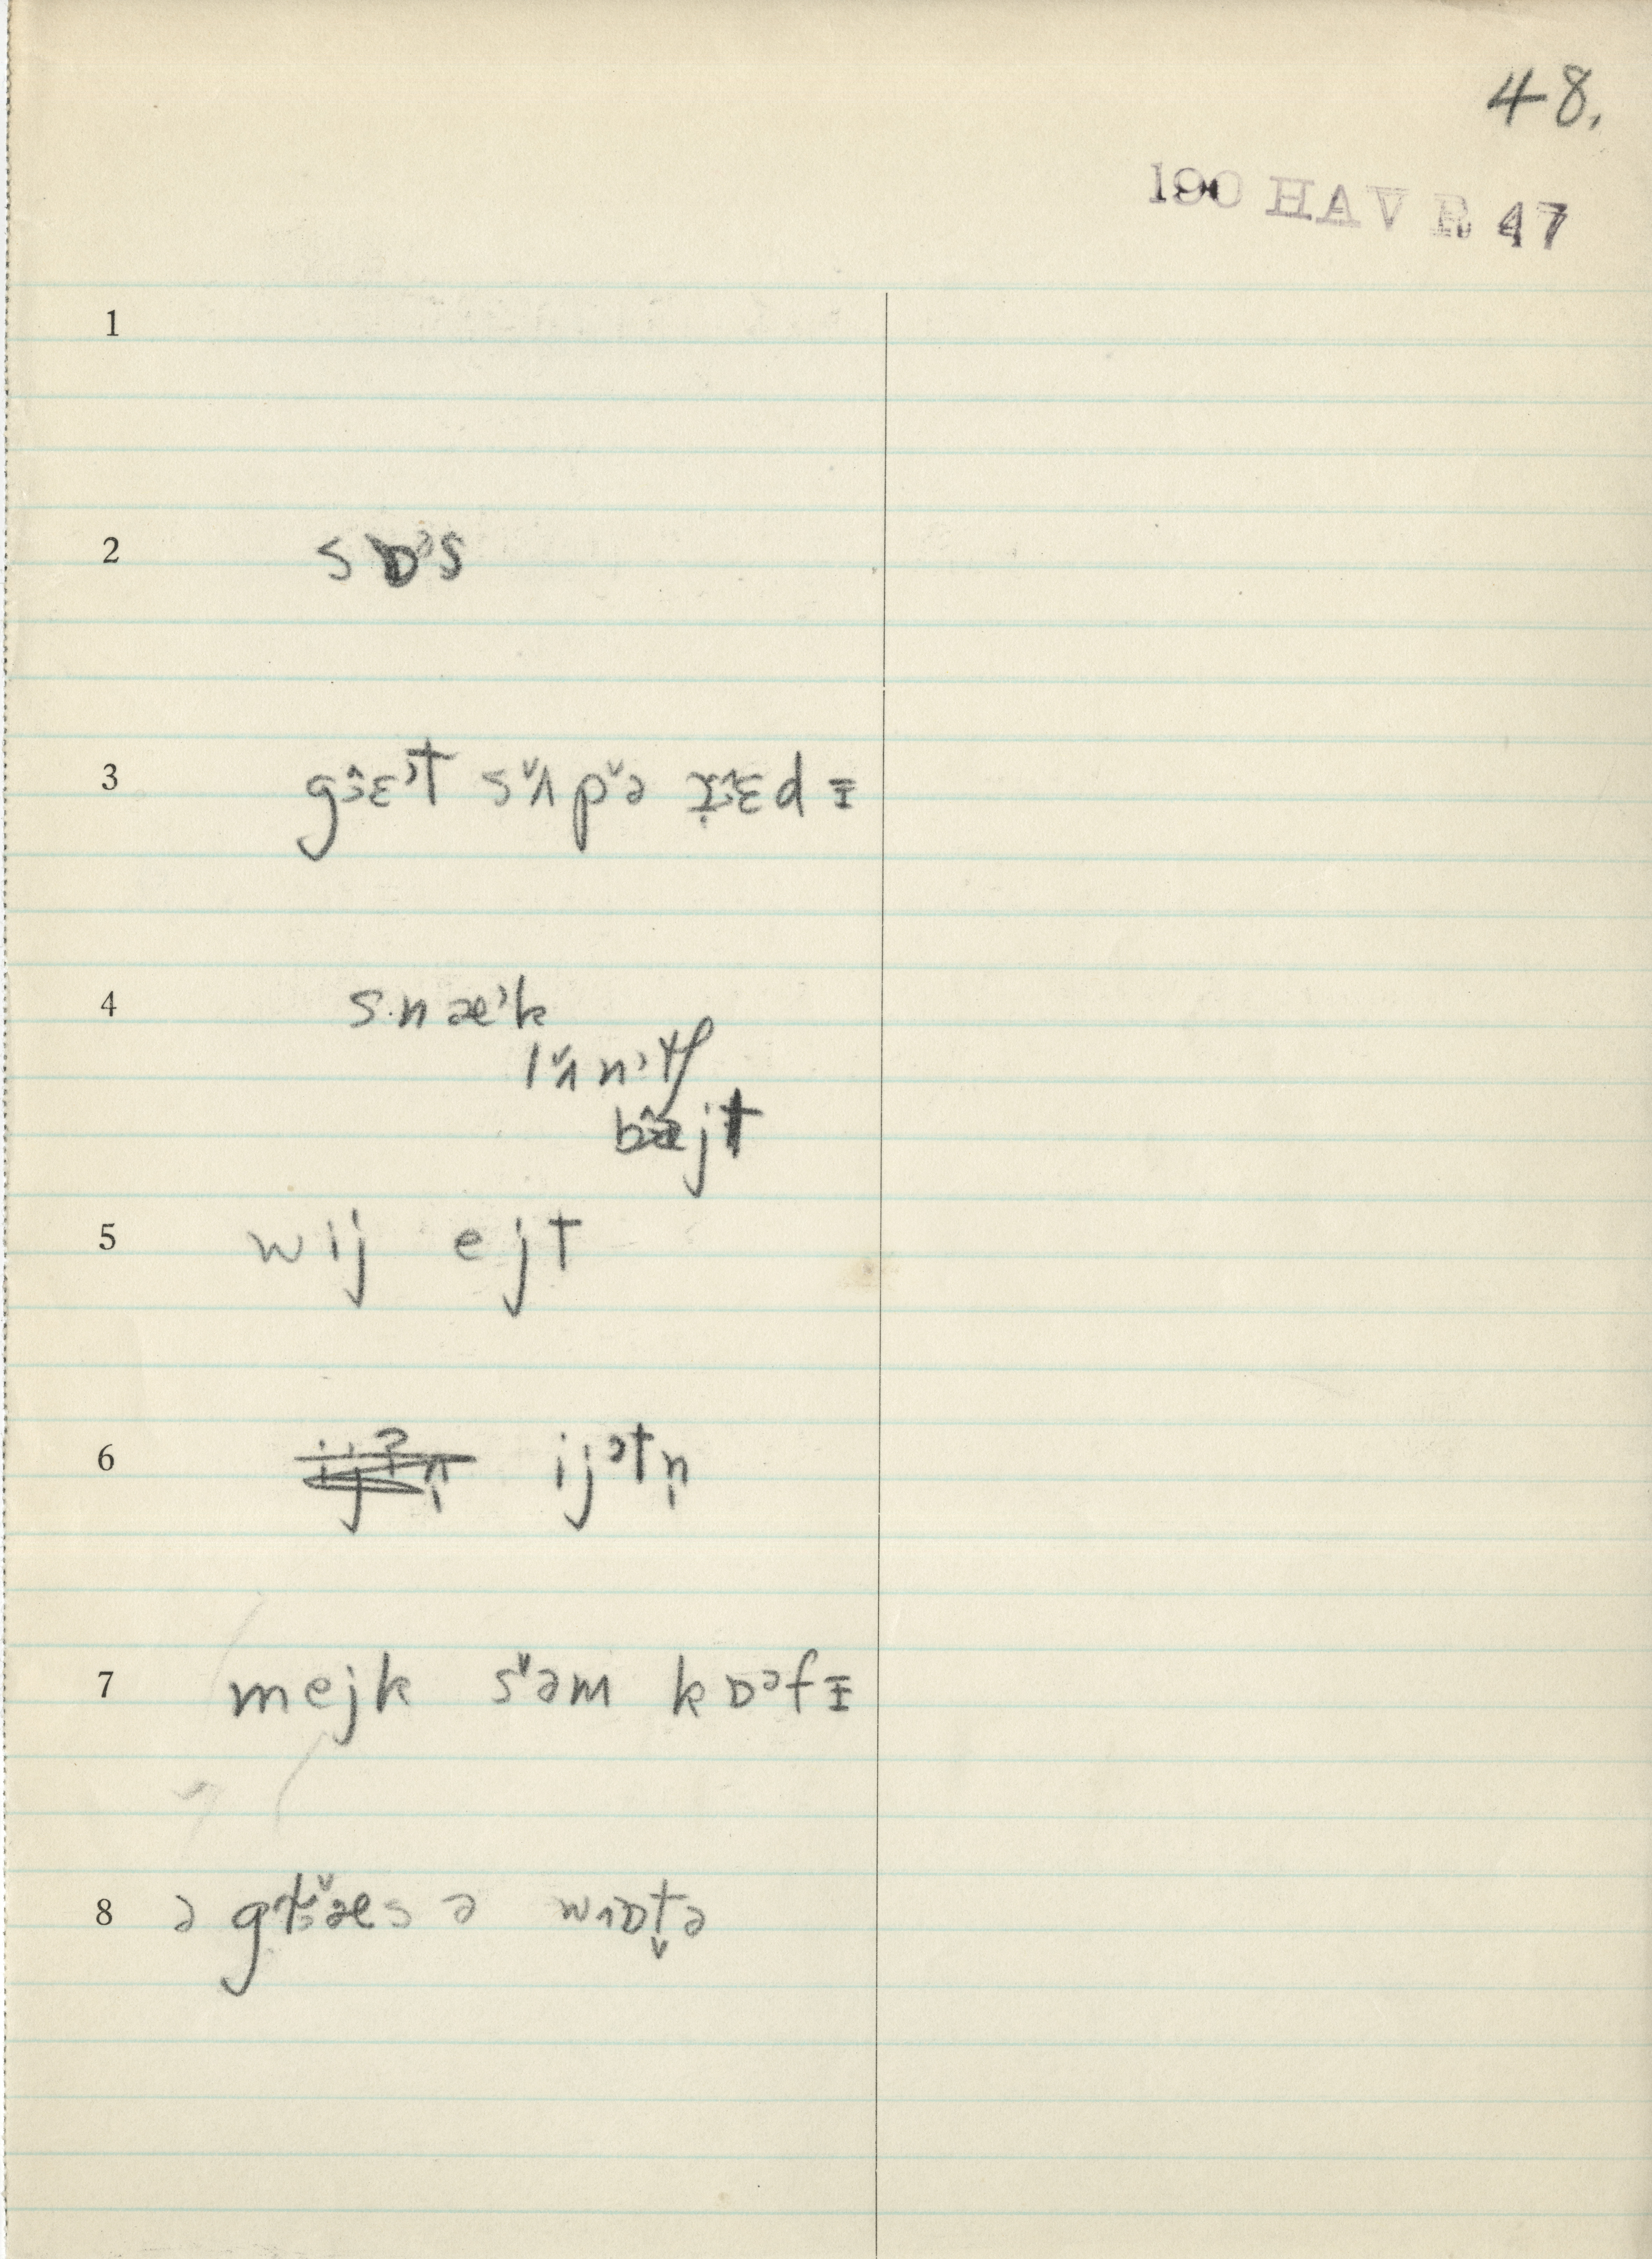 48.
190 HAV R 47
1
2 sɒˀs
3 gɜ̂ɛˀt sʌ̌pə̌ rɜ̂ɛdɪ
4 snæˀk
lʌ̌nˀtʃ
bæ̂jt
5 wij ejt
6 ijᵊtn̩
7 mejk sə̌m kɒᵊfɪ
8 ə glæ̌s ə wɒt̬ə